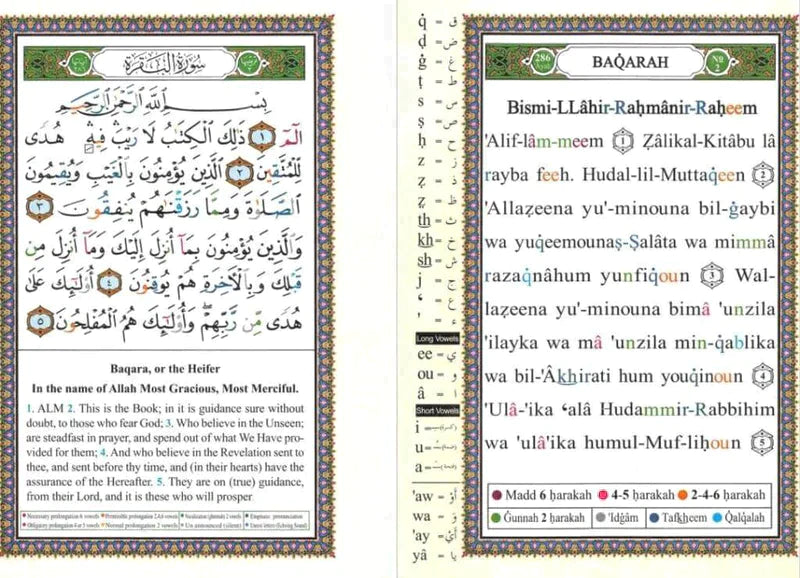 سورة البقرة
بسم الله الرحمن الرحيم
الٓمٓ ١ ذَٰلِكَ الْكِتَٰبُ لَا رَيْبَ فِيهِ هُدًى
لِّلْمُتَّقِينَ ٢ الَّذِينَ يُؤْمِنُونَ بِالْغَيْبِ وَيُقِيمُونَ
الصَّلَوٰةَ وَمِمَّا رَزَقْنَٰهُمْ يُنفِقُونَ ٣
وَالَّذِينَ يُؤْمِنُونَ بِمَآ أُنزِلَ إِلَيْكَ وَمَآ أُنزِلَ مِن
قَبْلِكَ وَبِالْآخِرَةِ هُمْ يُوقِنُونَ ٤ أُو۟لَٰٓئِكَ عَلَىٰ
هُدًى مِّن رَّبِّهِمْ وَأُو۟لَٰٓئِكَ هُمُ الْمُفْلِحُونَ ٥
Baqara, or the Heifer
In the name of Allah Most Gracious, Most Merciful.
1. ALM 2. This is the Book; in it is guidance sure without
doubt, to those who fear God; 3. Who believe in the Unseen;
are steadfast in prayer, and spend out of what We Have pro-
vided for them; 4. And who believe in the Revelation sent to
thee, and sent before thy time, and (in their hearts) have the
assurance of the Hereafter. 5. They are on (true) guidance,
from their Lord, and it is these who will prosper
Necessary prolongation 6 vowels Permissible prolongation 2,4,6 vowels Nasalization (ghunnah) 2 vowels Emphatic pronunciation
Obligatory prolongation 4 or 5 vowels Normal prolongation 2 vowels Un announced (silent) Unrest letters (Echoing Sound)
q̇ = ق
ḍ = ض
ġ = غ
ṭ = ط
s = س
ṣ = ص
ḥ = ح
z = ز
ẓ = ذ
ẓ = ظ
th = ث
kh = خ
sh = ش
j = ج
ʿ = ع
' = ء
Long Vowels
ee = ي
ou = و
â = ا
Short Vowels
i =
u =
a =
'aw = أَوْ
wa = وَ
'ay = أَيْ
yâ = يا
286
BAQ̇ARAH
No 2
Bismi-LLâhir-Raḥmânir-Raḥeem
'Alif-lâm-meem 1 Ẓâlikal-Kitâbu lâ
rayba feeh. Hudal-lil-Muttaq̇een 2
'Allaẓeena yu'-minouna bil-ġaybi
wa yuq̇eemounaṣ-Ṣalâta wa mimmâ
razaq̇nâhum yunfiq̇oun 3 Wal-
laẓeena yu'-minouna bimâ 'unzila
'ilayka wa mâ 'unzila min-q̇ablika
wa bil-'Âkhirati hum youq̇inoun 4
'Ulâ-'ika ʿalâ Hudammir-Rabbihim
wa 'ulâ'ika humul-Muf-liḥoun 5
Madd 6 ḥarakah 4-5 ḥarakah 2-4-6 ḥarakah
Ġunnah 2 ḥarakah 'Idġâm Tafkheem Q̇alq̇alah